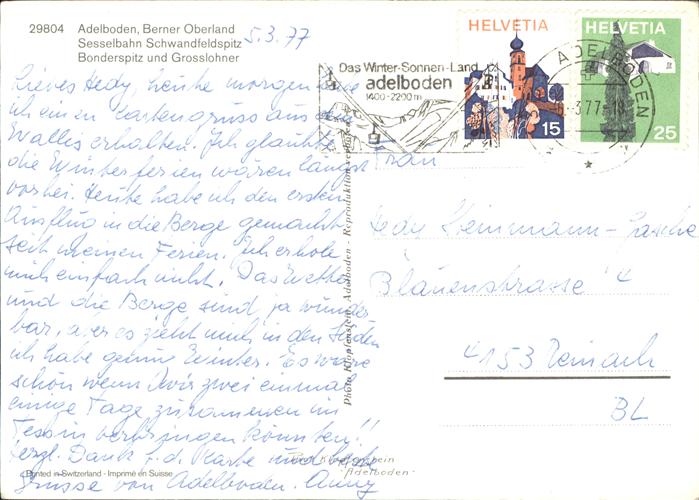 29804 Adelboden, Berner Oberland
Sesselbahn Schwandfeldspitz
Bonderspitz und Grosslohner
5.3.77
Lieves Hedy, heute morgen habe
ich einen Kartengruss aus dem
Wallis erhalten. Ich glaubte
die Winterferien wären längst
vorbei. Heute habe ich den ersten
Ausflug in die Berge gemacht
seit meinen Ferien. Ich erhole
mich einfach nicht. Das Wetter
und die Berge sind ja wunder-
bar, aber es zieht mich in den Süden
ich habe genug Winter. Es wäre
schön wenn wir zwei einmal
einige Tage zusammen im
Tessin verbringen könnten!!
Herzl. Dank f. d. Karte und liebe
Grüsse von Adelboden. Anny
Printed in Switzerland - Imprimé en Suisse
Photo Klopfenstein, Adelboden - Reproduktion verboten
Klopfenstein
Adelboden
Das Winter-Sonnen-Land
adelboden
1400-2200 m
HELVETIA
15
HELVETIA
25
ADELBODEN
3.77-18
Frau
Hedy Steinmann-Jasche
Blauenstrasse 4
4153 Reinach
BL